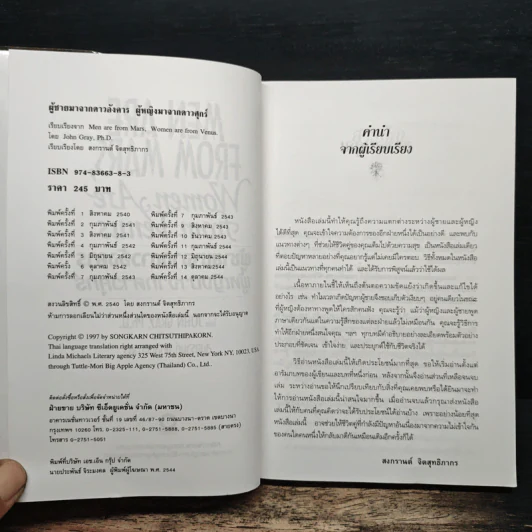 ผู้ชายมาจากดาวอังคาร ผู้หญิงมาจากดาวศุกร์
เรียบเรียงจาก Men are from Mars, Women are from Venus.
โดย John Gray, Ph.D.
เรียบเรียงโดย สงกรานต์ จิตสุทธิภากร
ISBN 974-83663-8-3
ราคา 245 บาท
พิมพ์ครั้งที่ 1 สิงหาคม 2540
พิมพ์ครั้งที่ 2 กุมภาพันธ์ 2541
พิมพ์ครั้งที่ 3 สิงหาคม 2541
พิมพ์ครั้งที่ 4 กุมภาพันธ์ 2542
พิมพ์ครั้งที่ 5 มิถุนายน 2542
พิมพ์ครั้งที่ 6 ตุลาคม 2542
พิมพ์ครั้งที่ 7 กุมภาพันธ์ 2543
พิมพ์ครั้งที่ 7 กุมภาพันธ์ 2543
พิมพ์ครั้งที่ 9 สิงหาคม 2543
พิมพ์ครั้งที่ 10 ธันวาคม 2543
พิมพ์ครั้งที่ 11 กุมภาพันธ์ 2544
พิมพ์ครั้งที่ 12 มิถุนายน 2544
พิมพ์ครั้งที่ 13 สิงหาคม 2544
พิมพ์ครั้งที่ 14 ตุลาคม 2544
สงวนลิขสิทธิ์ © พ.ศ. 2540 โดย สงกรานต์ จิตสุทธิภากร
ห้ามการลอกเลียนไม่ว่าส่วนหนึ่งส่วนใดของหนังสือเล่มนี้ นอกจากจะได้รับอนุญาต
Copyright © 1997 by SONGKARN CHITSUTHIPAKORN.
Thai language translation right arranged with
Linda Michaels Literary agency 325 West 75th Street, New York, NY 10023,
through Tuttle-Mori Big Apple Agency (Thailand) Co., Ltd.
ติดต่อสั่งซื้อหรือสั่งเพิ่มเติมจำนวนได้ที่
ฝ่ายขาย บริษัท ซีเอ็ดยูเคชั่น จำกัด (มหาชน)
อาคารเนชั่นทาวเวอร์ ชั้นที่ 19 เลขที่ 46/87-90 ถนนบางนา-ตราด เขตบางนา
กรุงเทพฯ 10260 โทร. 0-2325-1111, 0-2751-5888, 0-2751-5885 (สายตรง)
โทรสาร 0-2751-5051
พิมพ์ที่บริษัท เอช.เอ็น กรุ๊ป จำกัด
นายประพันธ์ จิระมงคล ผู้พิมพ์ผู้โฆษณา พ.ศ. 2544
คำนำ
จากผู้เรียบเรียง
หนังสือเล่มนี้ทำให้คุณรู้ถึงความแตกต่างระหว่างผู้ชายและผู้หญิง
ได้ดีที่สุด คุณจะเข้าใจความต้องการของอีกฝ่ายหนึ่งได้เป็นอย่างดี และพบกับ
แนวทางต่างๆ ที่ช่วยให้ชีวิตคู่ของคุณเต็มไปด้วยความสุข เป็นหนังสือเล่มเดียว
ที่ตอบปัญหาหลายอย่างที่คุณอยากรู้แต่ไม่เคยมีใครตอบ วิธีทั้งหมดในหนังสือ
เล่มนี้เป็นแนวทางที่ทุกคนทำได้ และได้รับการพิสูจน์แล้วว่าใช้ได้ผล
เนื้อหาภายในชี้ให้เห็นถึงต้นตอความขัดแย้งว่าเกิดขึ้นและแก้ไขได้
อย่างไร เช่น ทำไมเวลาเกิดปัญหาผู้ชายจึงชอบเก็บตัวเงียบๆ อยู่คนเดียวในขณะ
ที่ผู้หญิงต้องหาทางพูดให้ใครสักคนฟัง คุณจะรู้ว่า แม้ว่าผู้หญิงและผู้ชายพูด
ภาษาเดียวกันแต่ในความรู้สึกของแต่ละฝ่ายแล้วไม่เหมือนกัน คุณจะรู้วิธีการ
ทำให้อีกฝ่ายหนึ่งสนใจคุณ ฯลฯ ทุกบทมีคำอธิบายอย่างละเอียดพร้อมตัวอย่าง
ประกอบที่ชัดเจน เข้าใจง่าย และประยุกต์ใช้กับชีวิตจริงได้
วิธีอ่านหนังสือเล่มนี้ให้เกิดประโยชน์มากที่สุด ขอให้เริ่มอ่านตั้งแต่
อารัมภบทของผู้เขียนและบทที่หนึ่งก่อน หลังจากนั้นจึงอ่านส่วนที่เหลือจนจบ
เล่ม ระหว่างอ่านขอให้นึกเปรียบเทียบกับสิ่งที่คุณเคยพบหรือได้ยินมาจะทำ
ให้การอ่านหนังสือเล่มนี้น่าสนใจมากขึ้น เมื่ออ่านจบแล้วกรุณาส่งหนังสือ
เล่มนี้ให้กับคนที่คุณคิดว่าจะได้รับประโยชน์ได้อ่านบ้าง เพราะอย่างน้อยที่สุด
หนังสือเล่มนี้ อาจช่วยให้ชีวิตคู่ที่กำลังมีปัญหาอันเนื่องมาจากความไม่เข้าใจกัน
ของคนใดคนหนึ่งให้กลับมาดีกันเหมือนเดิมอีกครั้งก็ได้
สงกรานต์ จิตสุทธิภากร